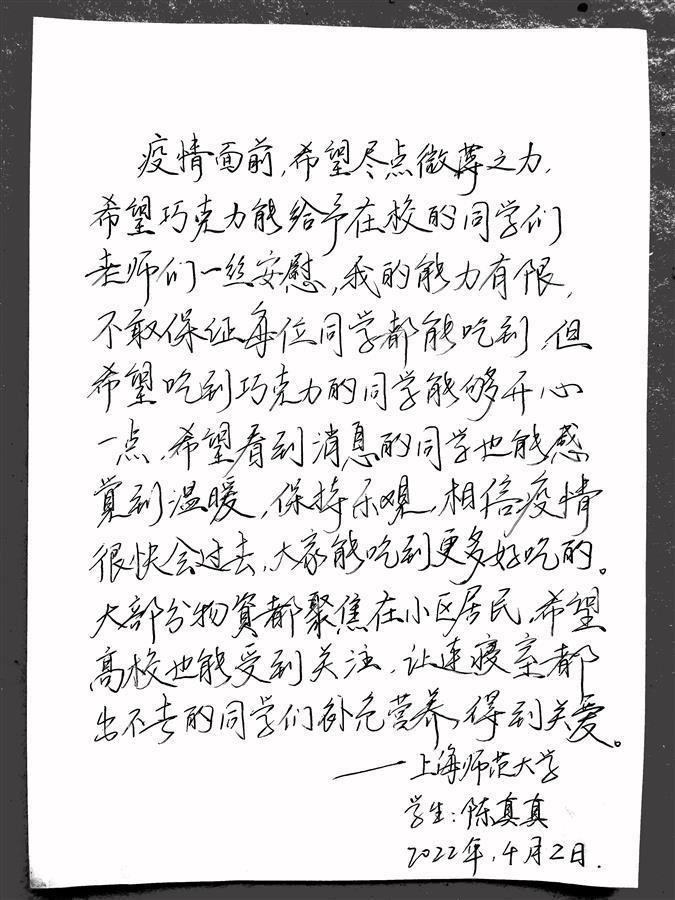 疫情面前,希望尽点微薄之力,
希望巧克力能给予在校的同学们
老师们一丝安慰,我的能力有限,
不敢保证每位同学都能吃到,但
希望吃到巧克力的同学能够开心
一点,希望看到消息的同学也能感
觉到温暖,保持乐观,相信疫情
很快会过去,大家能吃到更多好吃的。
大部分物资都聚焦在小区居民,希望
高校也能受到关注,让连寝室都
出不去的同学们补充营养,得到关爱。
——上海师范大学
学生:陈真真
2022年.4月2日.